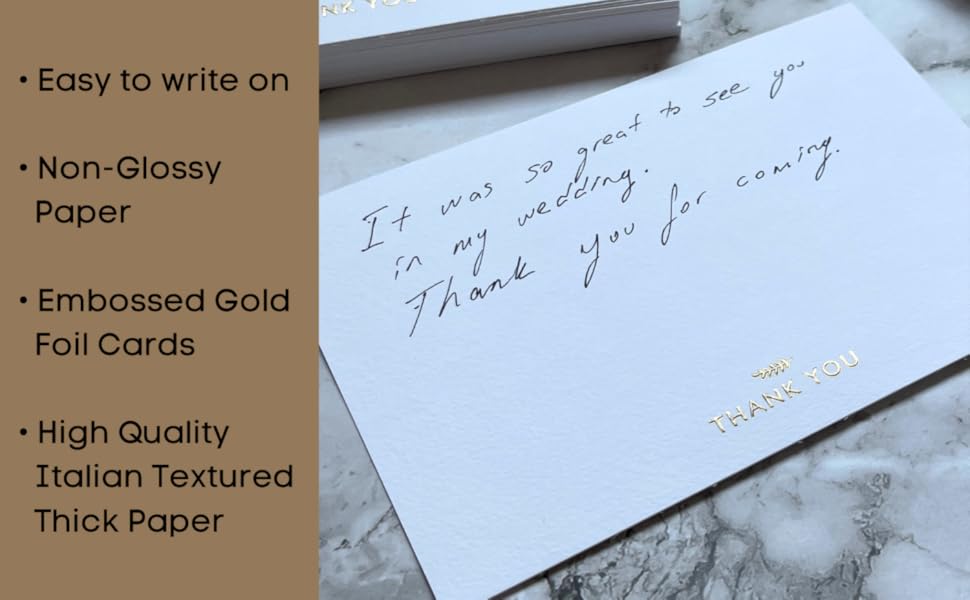 • Easy to write on
• Non-Glossy
Paper
• Embossed Gold
Foil Cards
• High Quality
Italian Textured
Thick Paper
NK YOU
It was so great to see you
in my wedding.
Thank you for coming.
THANK YOU